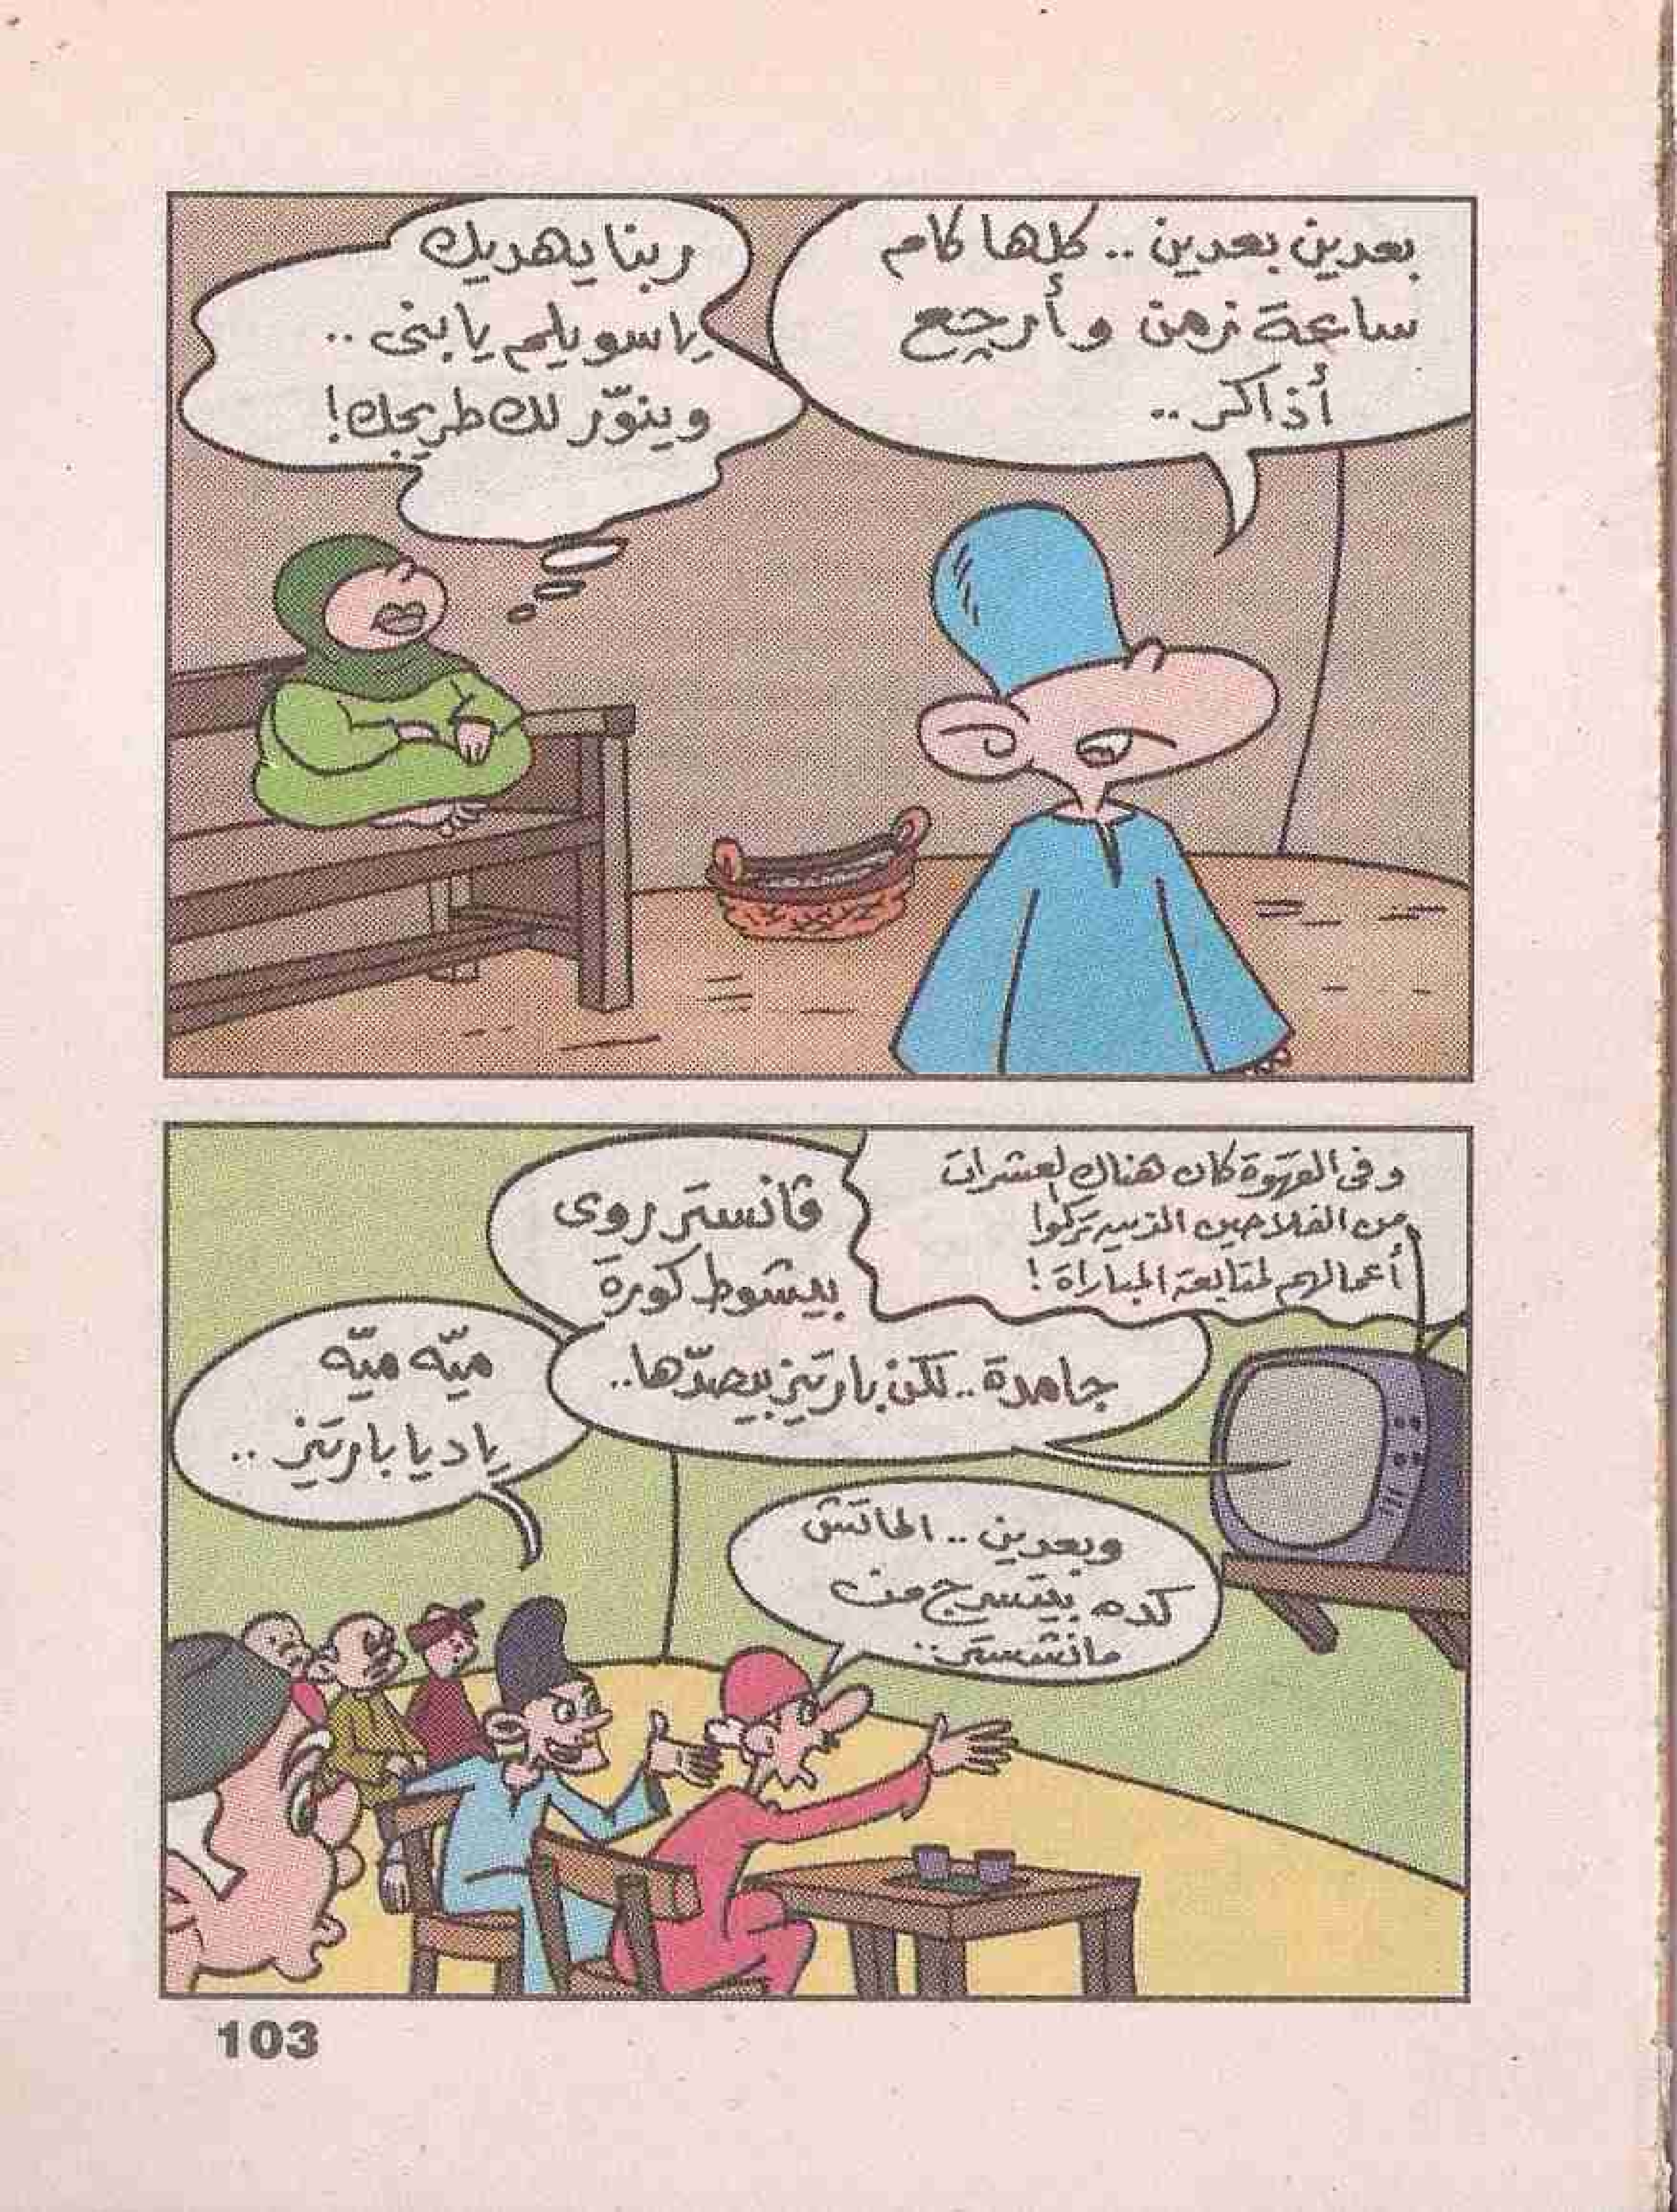 بعدين بعدين .. كلها كام
ساعة زمن وأرجع
أذاكر ..
ربنا يهديك
يا سويلم يا بنى ..
وينوّر لك طريجك !
وفى القهوة كان هناك لعشرات
من الفلاحين الذين تركوا
أعمالهم لمتابعة المباراة !
ڤانستر روى
بيشوط كورة
جامدة .. لكن بارتيز بيصدّها ..
ميّه ميّه
ياد يا بارتيز ..
وبعدين .. الماتش
كده بيتسرج من
مانشستر ..
103